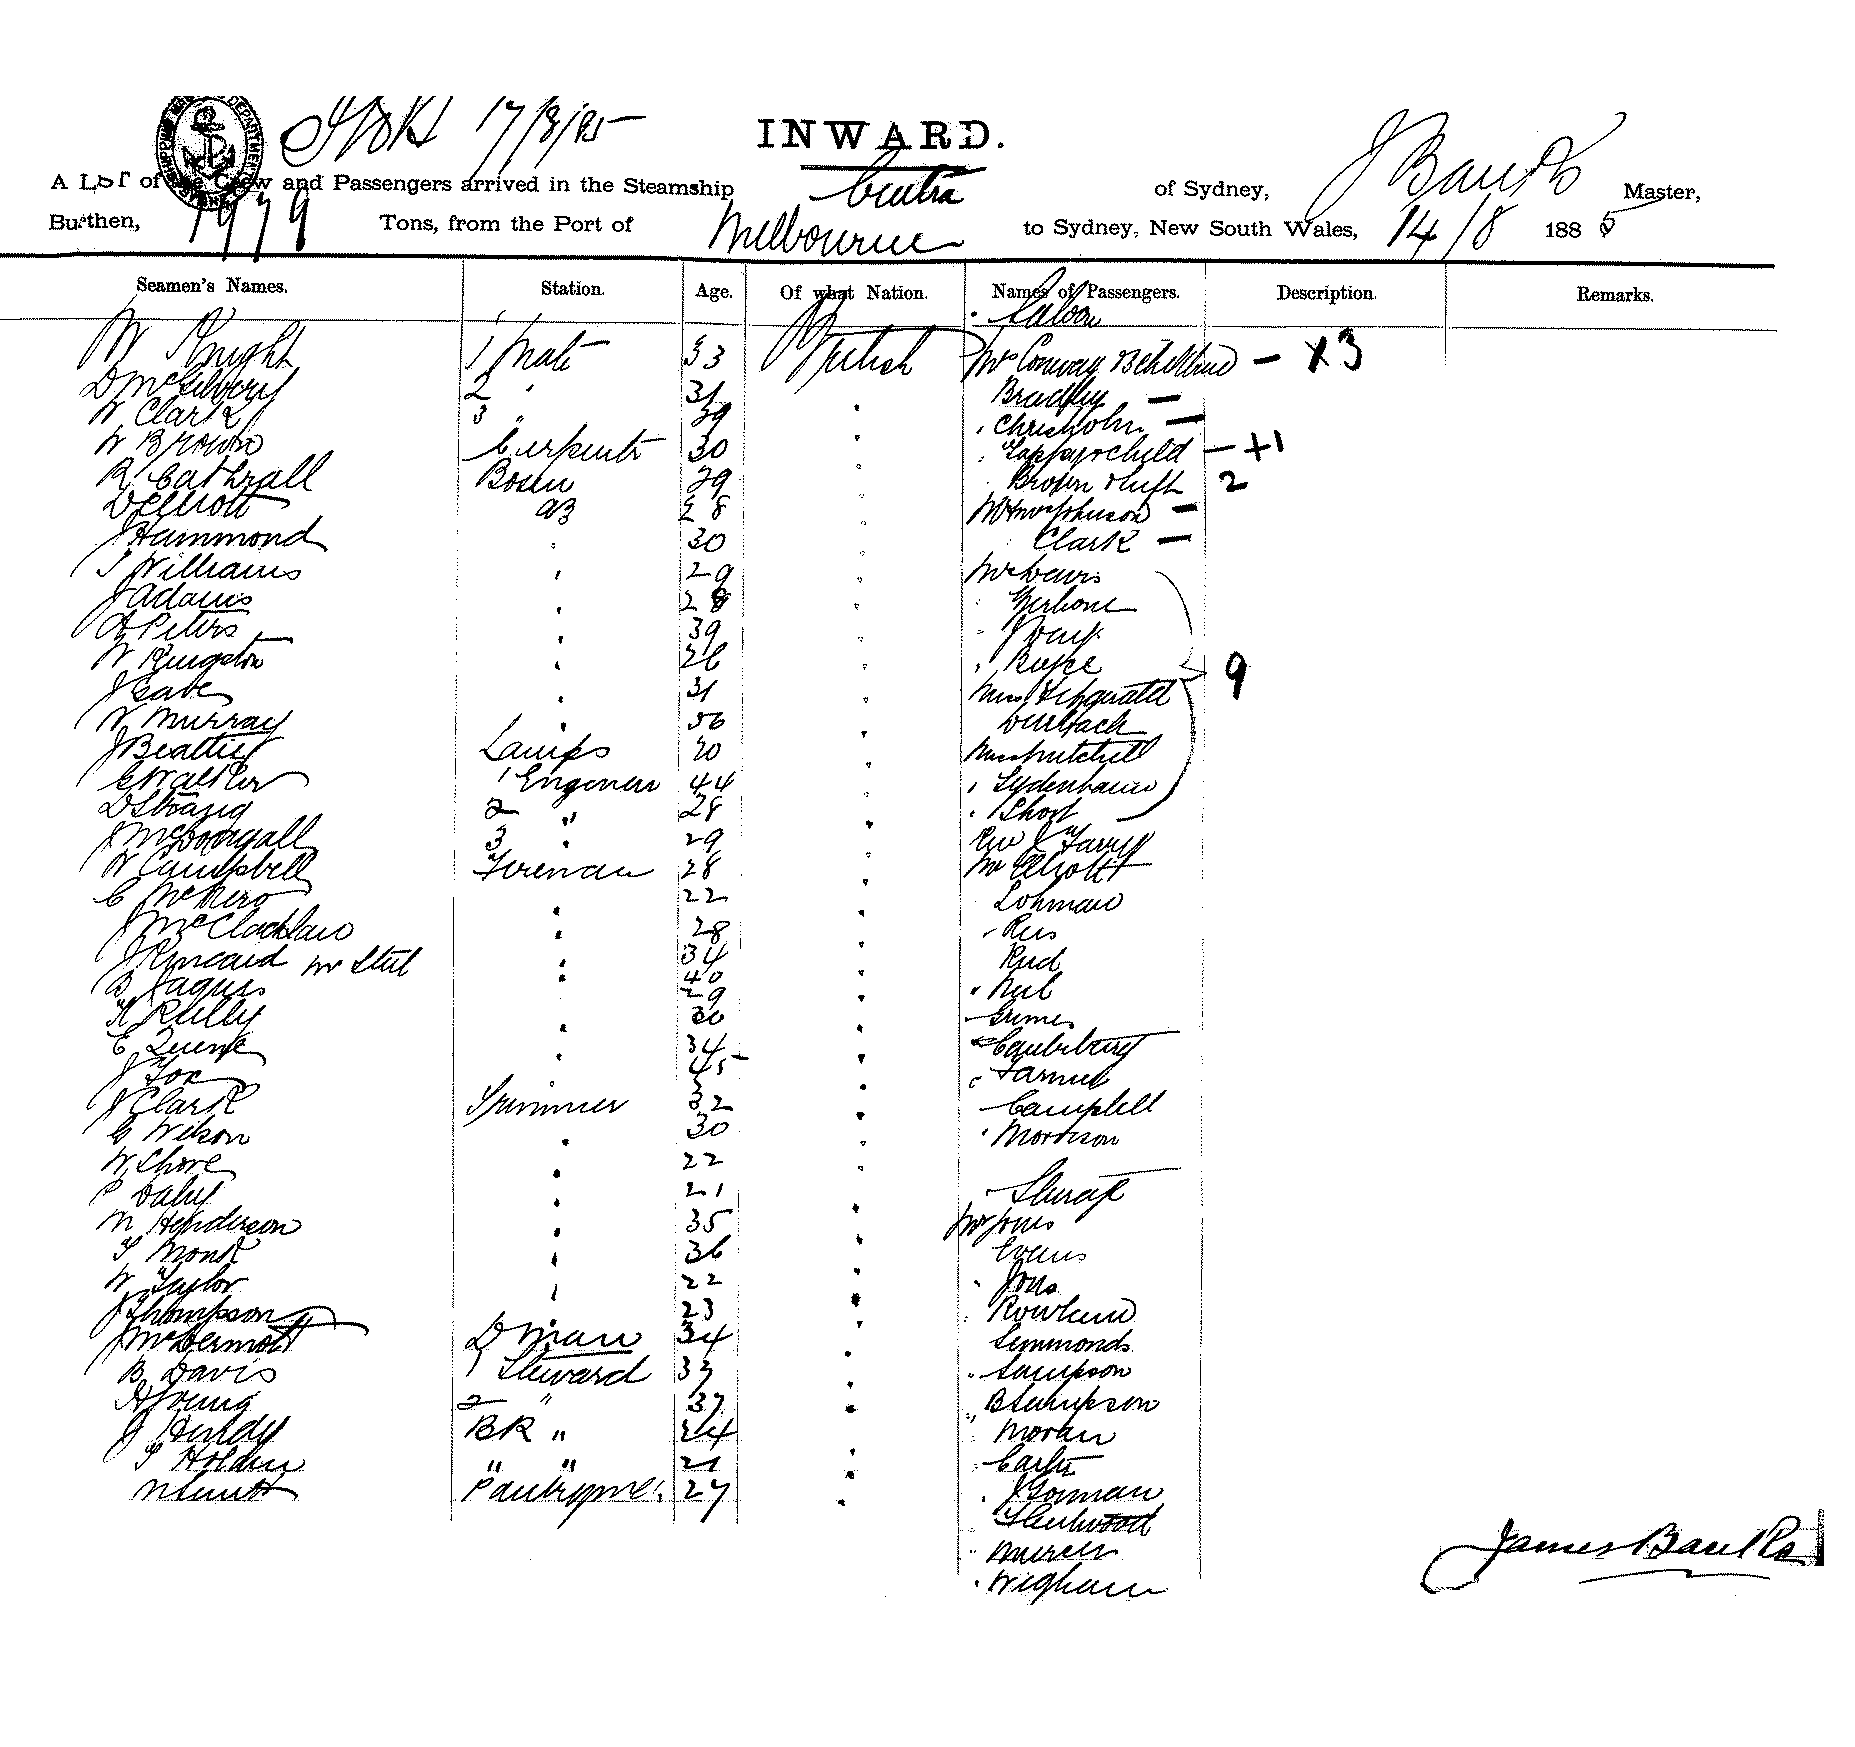 17/8/85
INWARD.
A List of the Crew and Passengers arrived in the Steamship Cintra of Sydney, J Banks Master,
Burthen, 1979 Tons, from the Port of Melbourne to Sydney, New South Wales, 14/8 1885
Seamen's Names. Station. Age. Of what Nation. Names of Passengers. Description. Remarks.
Saloon
W Knight 1 Mate 33 British Mrs Conway — x3
D McGilvery 2 " 31 Bradley —
W Clark 3 " 29 " Chisholm —
W Brown Carpenter 30 child — +1
R Cathrall Bosun 29 Brown & wife 2
D Elliott AB 28 —
J Hammond 30 Clark —
T Williams 29 Mrs Lewis
J Adams 28
A Peters 39
W Kingston 26 " Burke 9
J Cave 31 Miss Fitzgerald
W Murray 50
J Beattie Lamps 20 Miss Mitchell
C Walker 1 Engineer 44 " Sydenham
D Strang 2 " 28 " Short
J McDougall 3 " 29 Rev J
W Campbell Fireman 28 Mr Elliott
C 22 Lohman
J McClachlan 28 " Rees
J Kincaid 34 Reid
B Jaques 40 " Neil
Reilly 29 Grimes
C Quirk 30 Canterbury
J Fox 34
J Clark Trimmer 32 Campbell
C Wilson 30 " Morrison
W Shore 22
P Daly 21
M Henderson 35 Mr Jones
T Monk 36 Evans
W Taylor 22 " Jones
J Thompson 23 " Rowland
J McDermott D man 34 Simmonds
B Davis 1 Steward 33 " Sampson
A Young 2 " 37 " B Sampson
J Hendy BR " 24 Moran
T Holden " " 21 Carter
N Smith 27 " J Gorman
" Mercer
" Wigham
James Banks